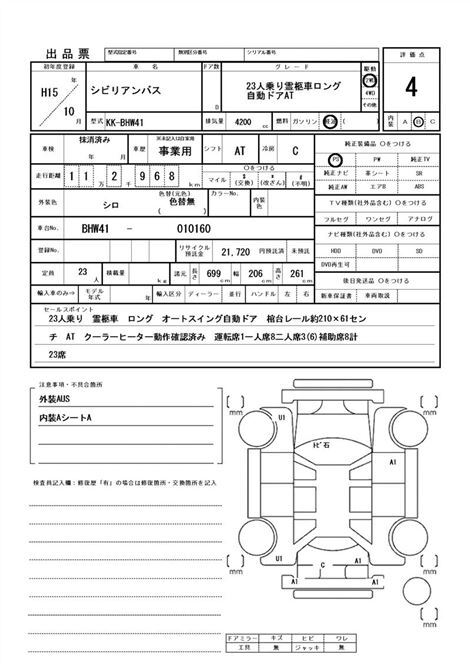 出品票 型式指定番号 類別区分番号 シリアル番号
初年度登録 車名 ドア数 グレード 駆動 評価点
H15 年 10 月
シビリアンバス
D
23人乗り霊柩車ロング
自動ドアAT
2WD
4WD
その他
4
型式 KK-BHW41 排気量 4200 cc 燃料 ガソリン 軽油 ( ) 内装 A B C
車検 抹消済み 年 月 車歴 ※未記入は自家用 事業用 シフト AT 冷房 C
純正装備品 Oをつける
走行距離 11万2千968km マイル Oをつける $(交換) *(改ざん) #(不明)
PS PW 純正TV
純正ナビ 革シート SR
純正AW エアB ABS
外装色 シロ 色替(元色) 色替無 ( ) カラーNo. 内装色
TV種類(社外品含む) Oをつける
フルセグ ワンセグ アナログ
車台No. BHW41 - 010160
ナビ種類(社外品含む) Oをつける
登録No. リサイクル預託金 21,720 円預託済 未預託
HDD DVD SD
DVD再生可
定員 23 人 積載量 kg 諸元 長さ 699 cm 幅 206 cm 高さ 261 cm
後日発送品 Oをつける
輸入車のみ⇒ モデル年式 年 輸入区分 ディーラー 並行 ハンドル 左 右
新車保証書 車両取説
セールスポイント
23人乗り 霊柩車 ロング オートスイング自動ドア 棺台レール約210×61セン
チ AT クーラーヒーター動作確認済み 運転席1一人席8二人席3(6)補助席8計
23席
注意事項・不具合箇所
外装AUS
内装AシートA
検査員記入欄：修復歴「有」の場合は修復箇所・交換箇所を記入
[ ] mm
[ ] mm
U1
トビ石
A1
A1
[ ] mm
[ ] mm
U1
C
A1
A1
A1
ドアミラー キズ ヒビ ワレ
工具 無 ジャッキ 無